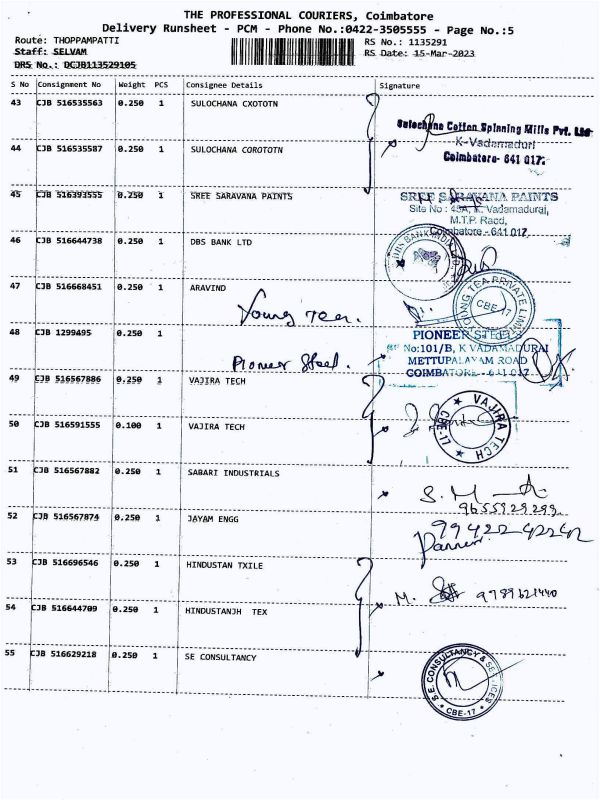 THE PROFESSIONAL COURIERS, Coimbatore
Delivery Runsheet - PCM - Phone No.:0422-3505555 - Page No.:5
Route: THOPPAMPATTI RS No.: 1135291
Staff: SELVAM RS Date: 15-Mar-2023
DRS No.: DCJB113529105
S No Consignment No Weight PCS Consignee Details Signature
43 CJB 516535563 0.250 1 SULOCHANA CXOTOTN
Sulochana Cotton Spinning Mills Pvt. Ltd
K-Vadamaduri
Coimbatore- 641 017.
44 CJB 516535587 0.250 1 SULOCHANA COROTOTN
45 CJB 516393555 0.250 1 SREE SARAVANA PAINTS
SREE SARAVANA PAINTS
Site No : 45A, K. Vadamadurai,
M.T.P. Raod,
Coimbatore - 641 017.
46 CJB 516644738 0.250 1 DBS BANK LTD
DBS BANK INDIA
47 CJB 516668451 0.250 1 ARAVIND
Young Tea.
YOUNG TEA PRIVATE LIMITED
CBE-17
48 CJB 1299495 0.250 1
Pioneer Steel.
PIONEER STEEL
No:101/B, K VADAMADURAI
METTUPALAYAM ROAD
COIMBATORE - 641 017
49 CJB 516567886 0.250 1 VAJIRA TECH
50 CJB 516591555 0.100 1 VAJIRA TECH
VAJIRA TECH
CBE-17
51 CJB 516567882 0.250 1 SABARI INDUSTRIALS
S. M
9655929299
52 CJB 516567874 0.250 1 JAYAM ENGG
9942242242
53 CJB 516696546 0.250 1 HINDUSTAN TXILE
M. 9789621440
54 CJB 516644709 0.250 1 HINDUSTANJH TEX
55 CJB 516629218 0.250 1 SE CONSULTANCY
S.E. CONSULTANCY & SERVICES
CBE-17